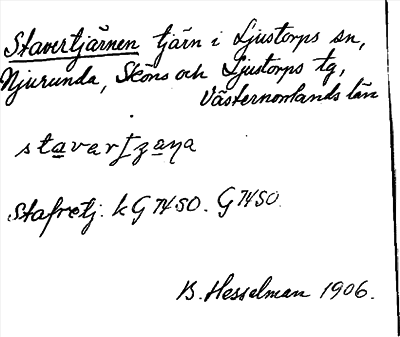 Stavertjärnen tjärn i Ljustorps sn,
Njurunda, Sköns och Ljustorps tg,
Västernorrlands län
stavarʃzaṇa
Stafretj. k G 74 SO. G 74 SO.
B. Hesselman 1906.